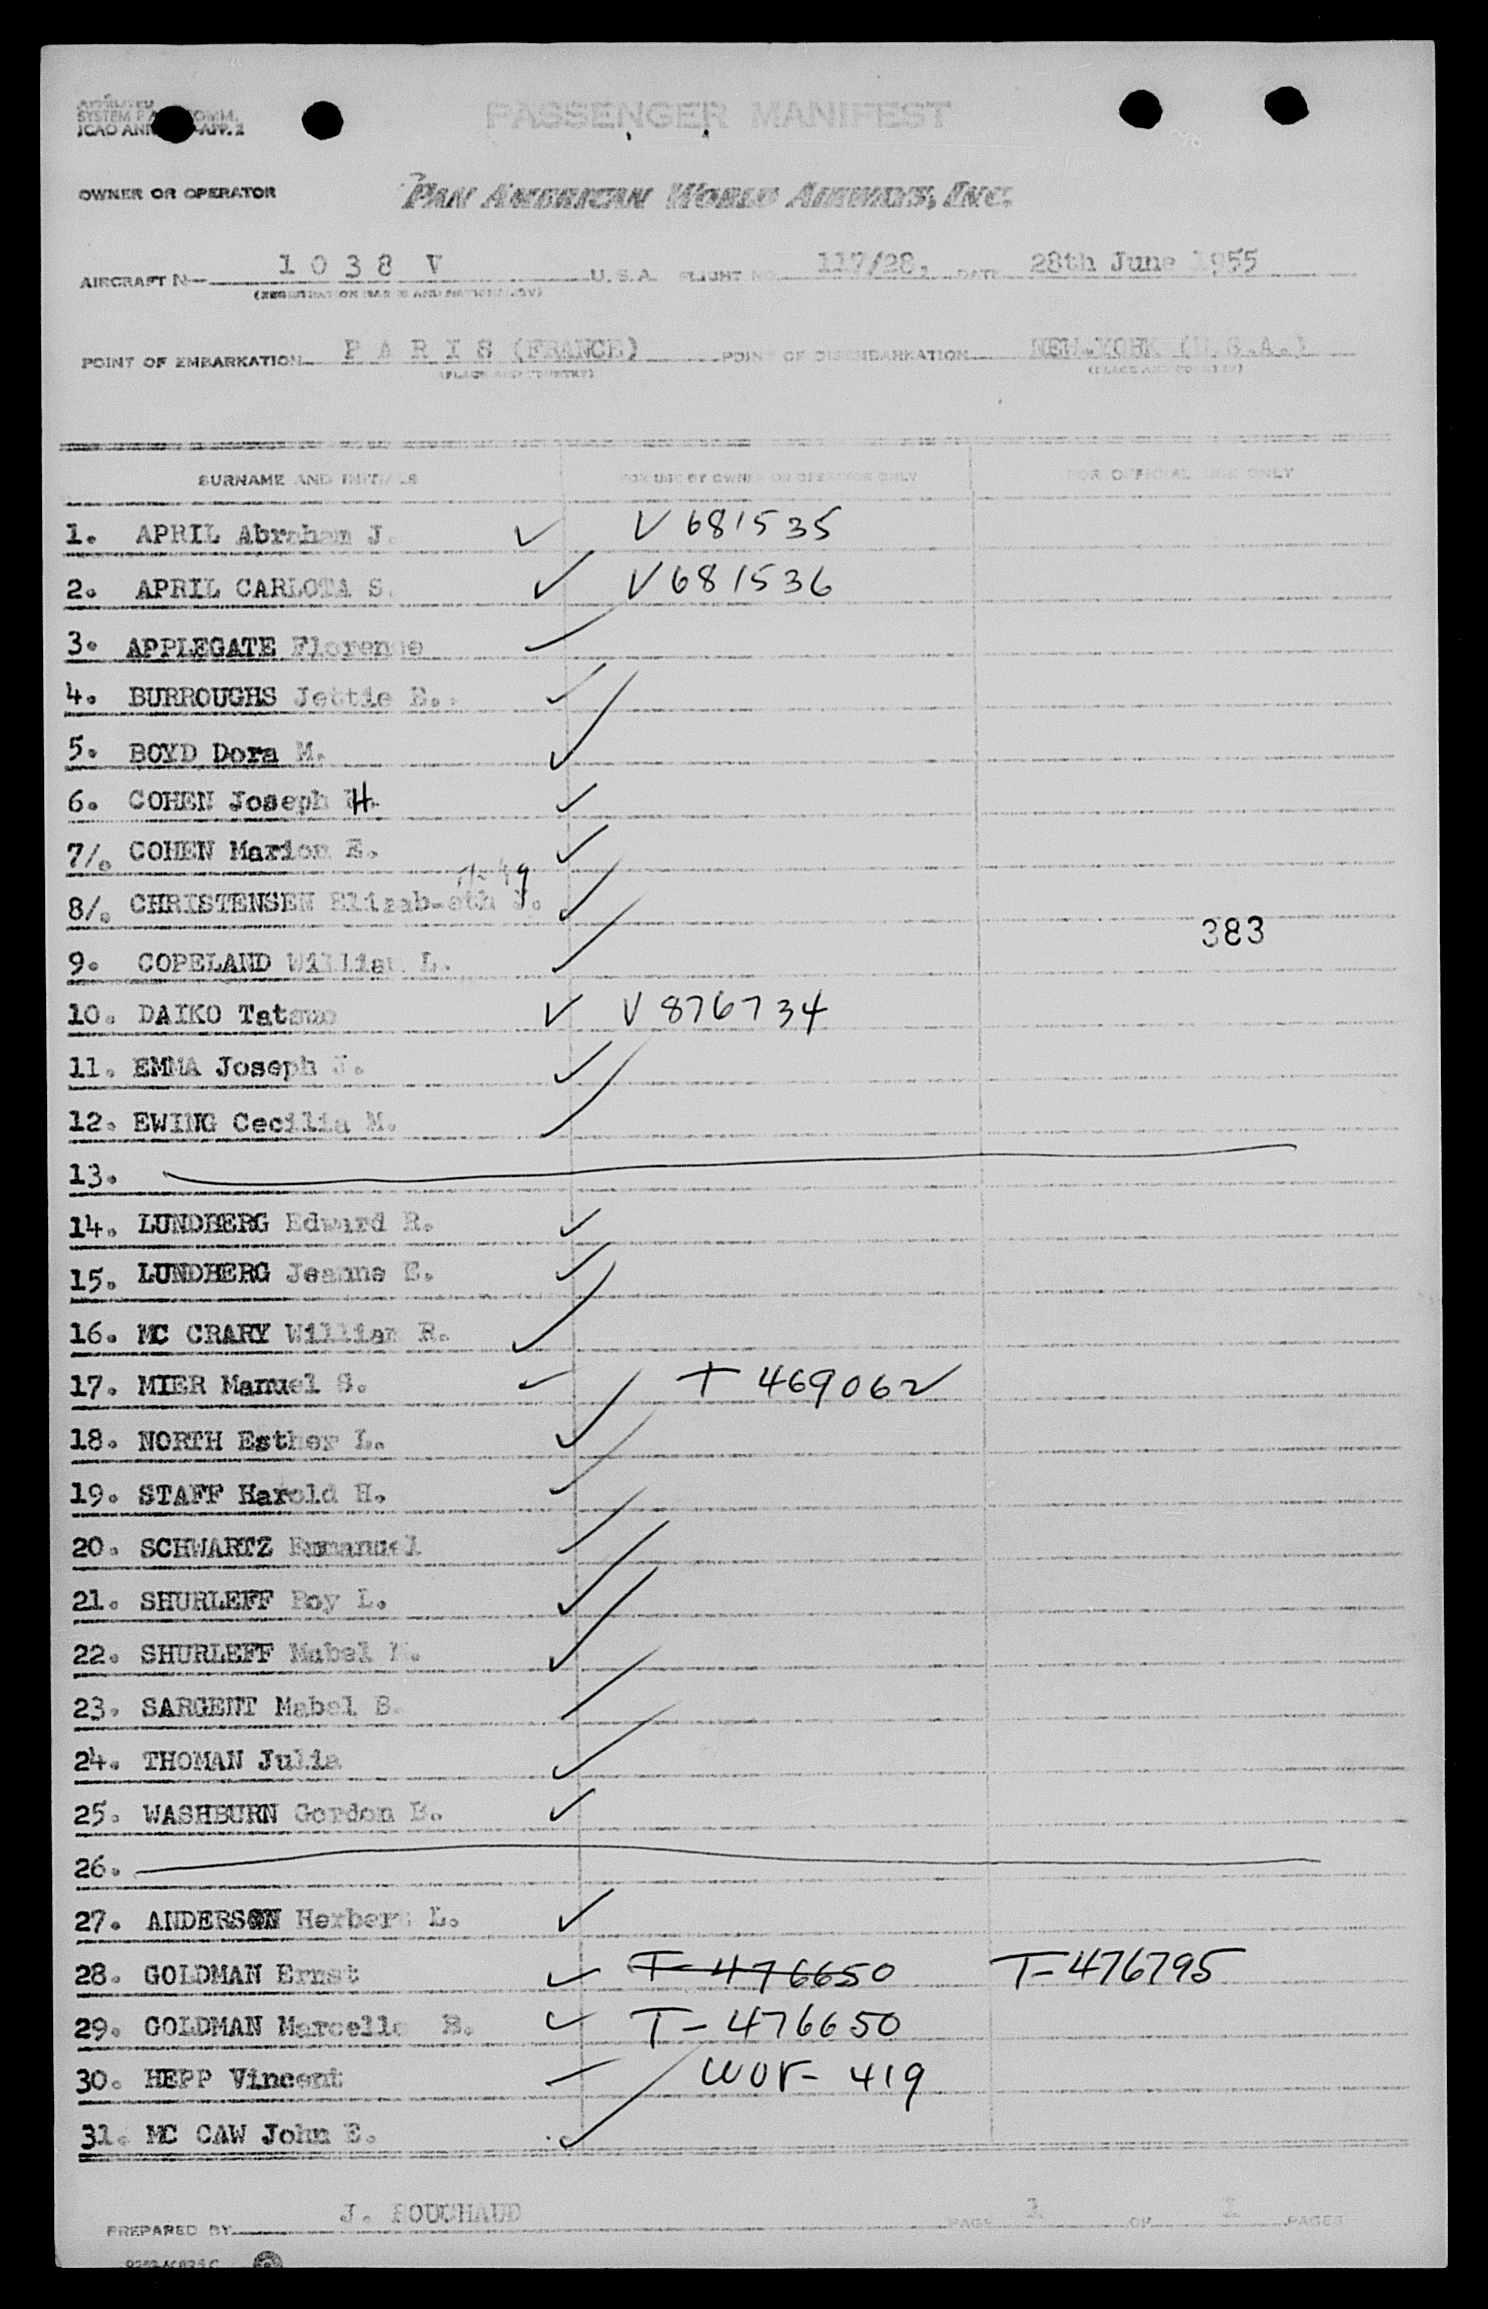 SYSTEM P COMM.
ICAO ANN -APP. 2
PASSENGER MANIFEST
OWNER OR OPERATOR PAN AMERICAN WORLD AIRWAYS, INC.
AIRCRAFT N 1038 V U.S.A. FLIGHT NO. 117/28, DATE 28th June 1955
(REGISTRATION MARKS AND NATIONALITY)
POINT OF EMBARKATION PARIS (FRANCE) POINT OF DISEMBARKATION NEW.YORK (U.S.A.)
(PLACE AND COUNTRY) (PLACE AND COUNTRY)
SURNAME AND INITIALS FOR USE BY OWNER OR OPERATOR ONLY FOR OFFICIAL USE ONLY
1. APRIL Abraham J. V 681535
2. APRIL CARLOTA S. V 681536
3. APPLEGATE Florence
4. BURROUGHS Jettie E.
5. BOYD Dora M.
6. COHEN Joseph H.
7/. COHEN Marion E.
8/. CHRISTENSEN Elizab-eth
383
9. COPELAND William L.
10. DAIKO Tatsuo V 876734
11. EMMA Joseph J.
12. EWING Cecilia M.
13.
14. LUNDBERG Edward R.
15. LUNDBERG Jeanne E.
16. MC CRARY William R.
17. MIER Manuel S. T 469062
18. NORTH Esther L.
19. STAFF Harold H.
20. SCHWARTZ Emmanuel
21. SHURLEFF Roy L.
22. SHURLEFF Mabel M.
23. SARGENT Mabel B.
24. THOMAN Julia
25. WASHBURN Gordon B.
26.
27. ANDERSON Herbert L.
28. GOLDMAN Ernst T-476650 T-476795
29. GOLDMAN Marcelle B. T-476650
30. HEPP Vincent WOV-419
31. MC CAW John E.
PREPARED BY J. POUCHAUD PAGE 1 OF 1 PAGES